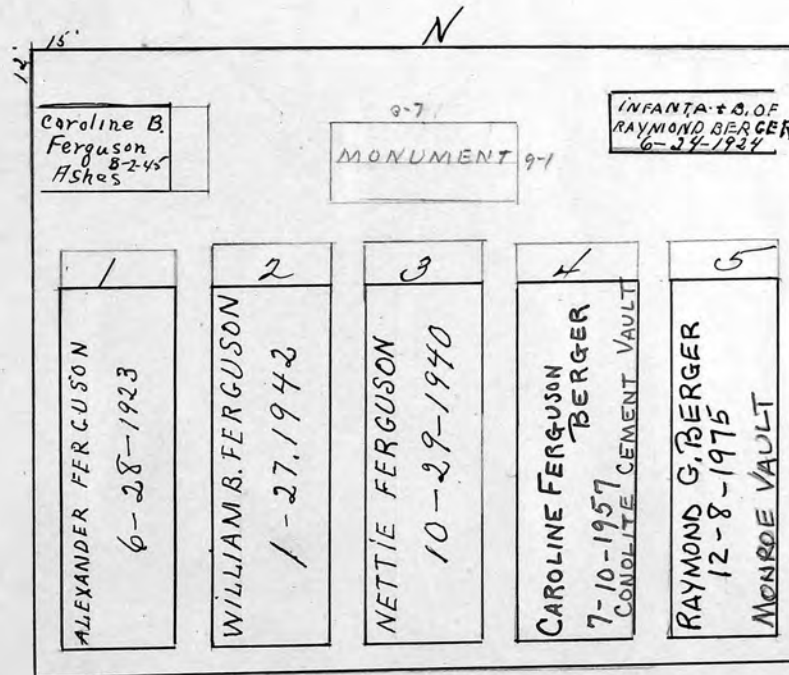 N
15'
12'
Caroline B.
Ferguson
8-2-45
Ashes
9-7
MONUMENT 9-1
INFANT A. & B. OF
RAYMOND BERGER
6-24-1924
1
ALEXANDER FERGUSON
6-28-1923
2
WILLIAM B. FERGUSON
1-27.1942
3
NETTIE FERGUSON
10-29-1940
4
CAROLINE FERGUSON
BERGER
7-10-1957
CONOLITE CEMENT VAULT
5
RAYMOND G. BERGER
12-8-1975
MONROE VAULT